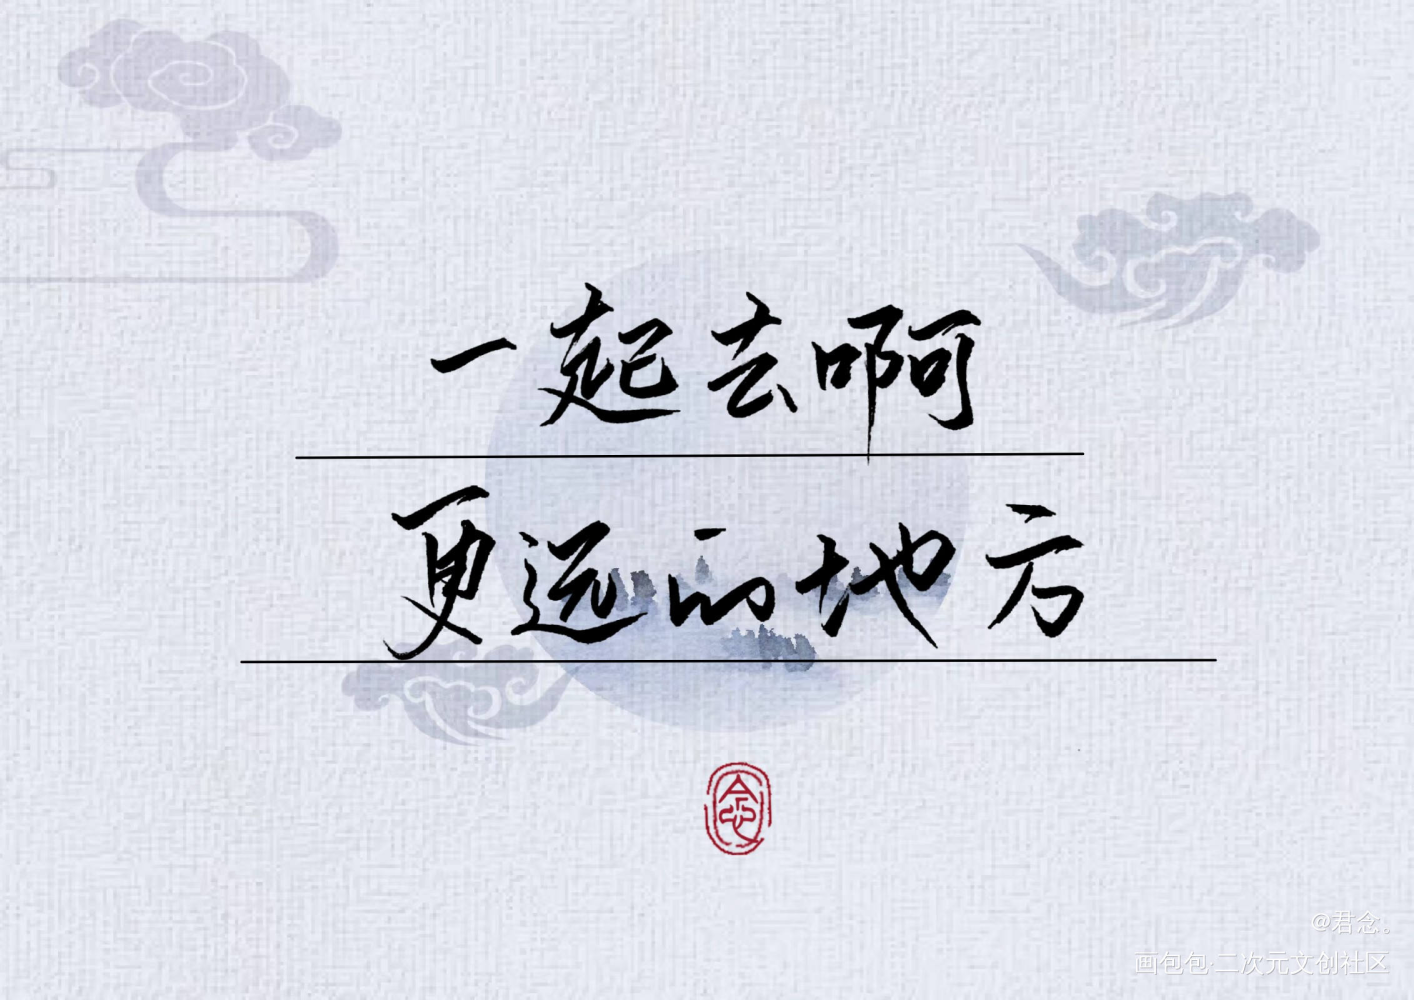 一起去啊
更远的地方
念
@君念。
画包包·二次元文创社区